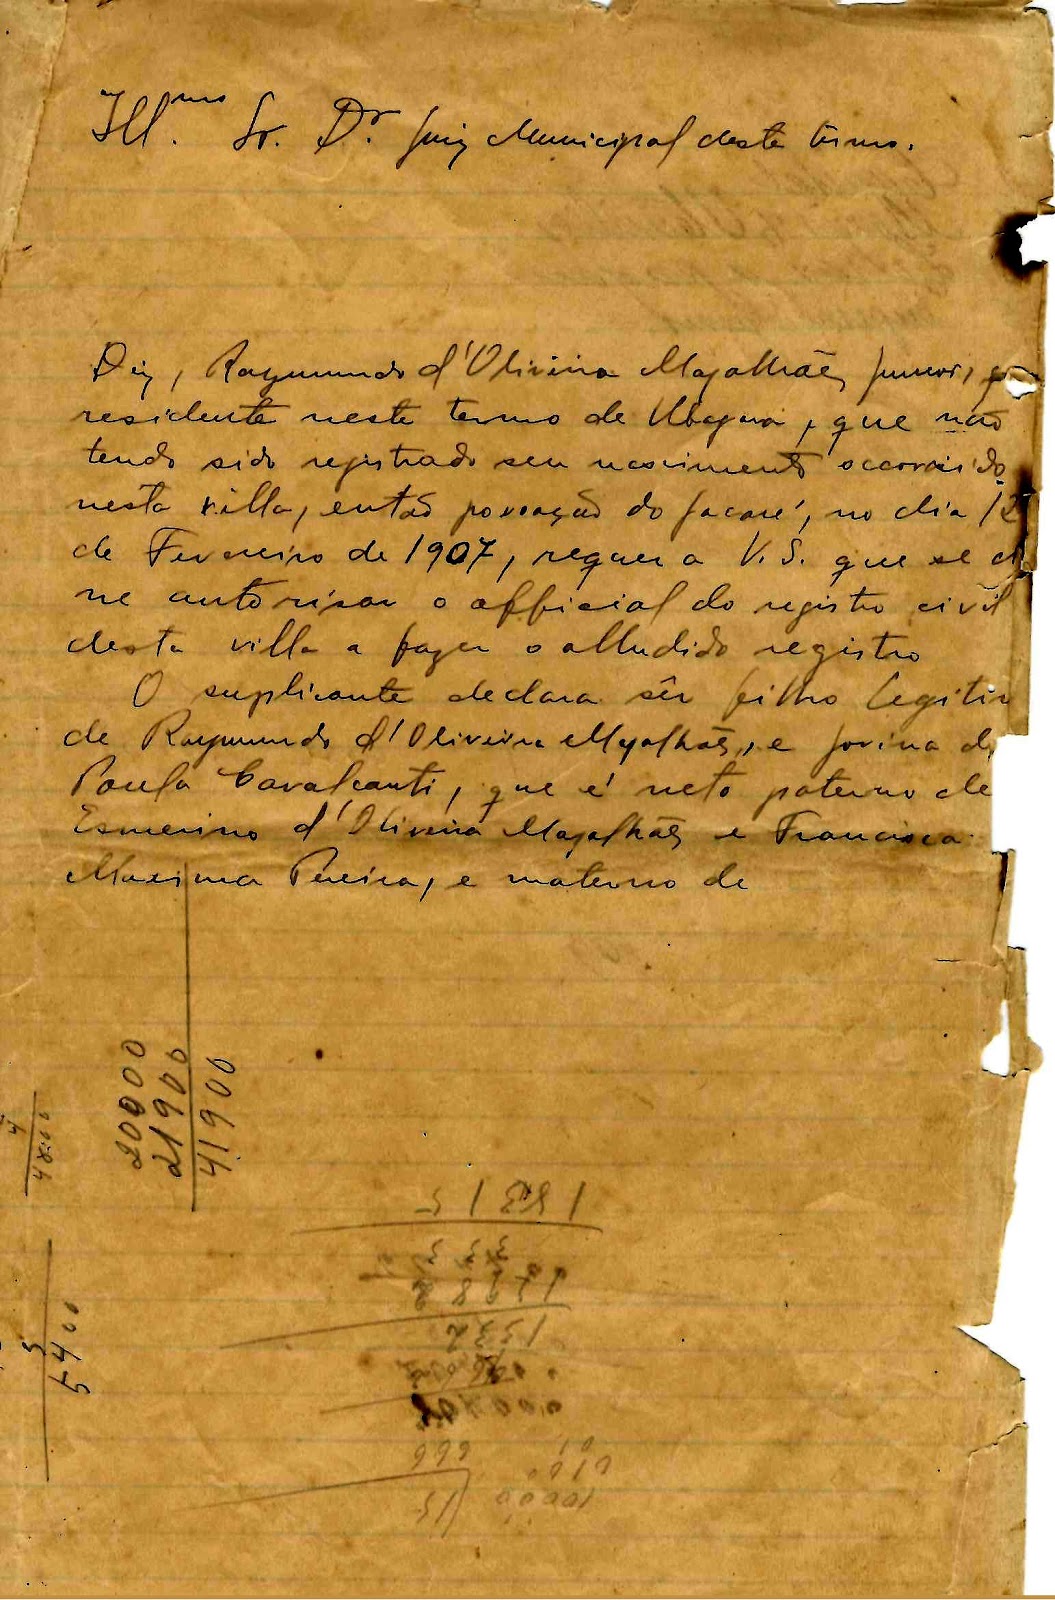 Ill.mo Sr. Dr. Juiz Municipal deste termo.
Diz, Raymundo d'Oliveira Magalhães Junior,
residente neste termo de Ubajara, que não
tendo sido registrado seu nascimento occorrido
nesta villa, então povoação do Jacaré, no dia 12
de Fevereiro de 1907, requer a V. S. que se di
ne autorisar o official do registro civil
desta villa a fazer o alludido registro
O suplicante declara sêr filho legitim
de Raymundo d'Oliveira Magalhães, e Jovina de
Paula Cavalcanti, que é neto paterno de
Esmerino d'Oliveira Magalhães e Francisca
Maxima Pereira, e materno de
20000
21900
41900
4
4800
5
5400
18315
1332
666
15
10000